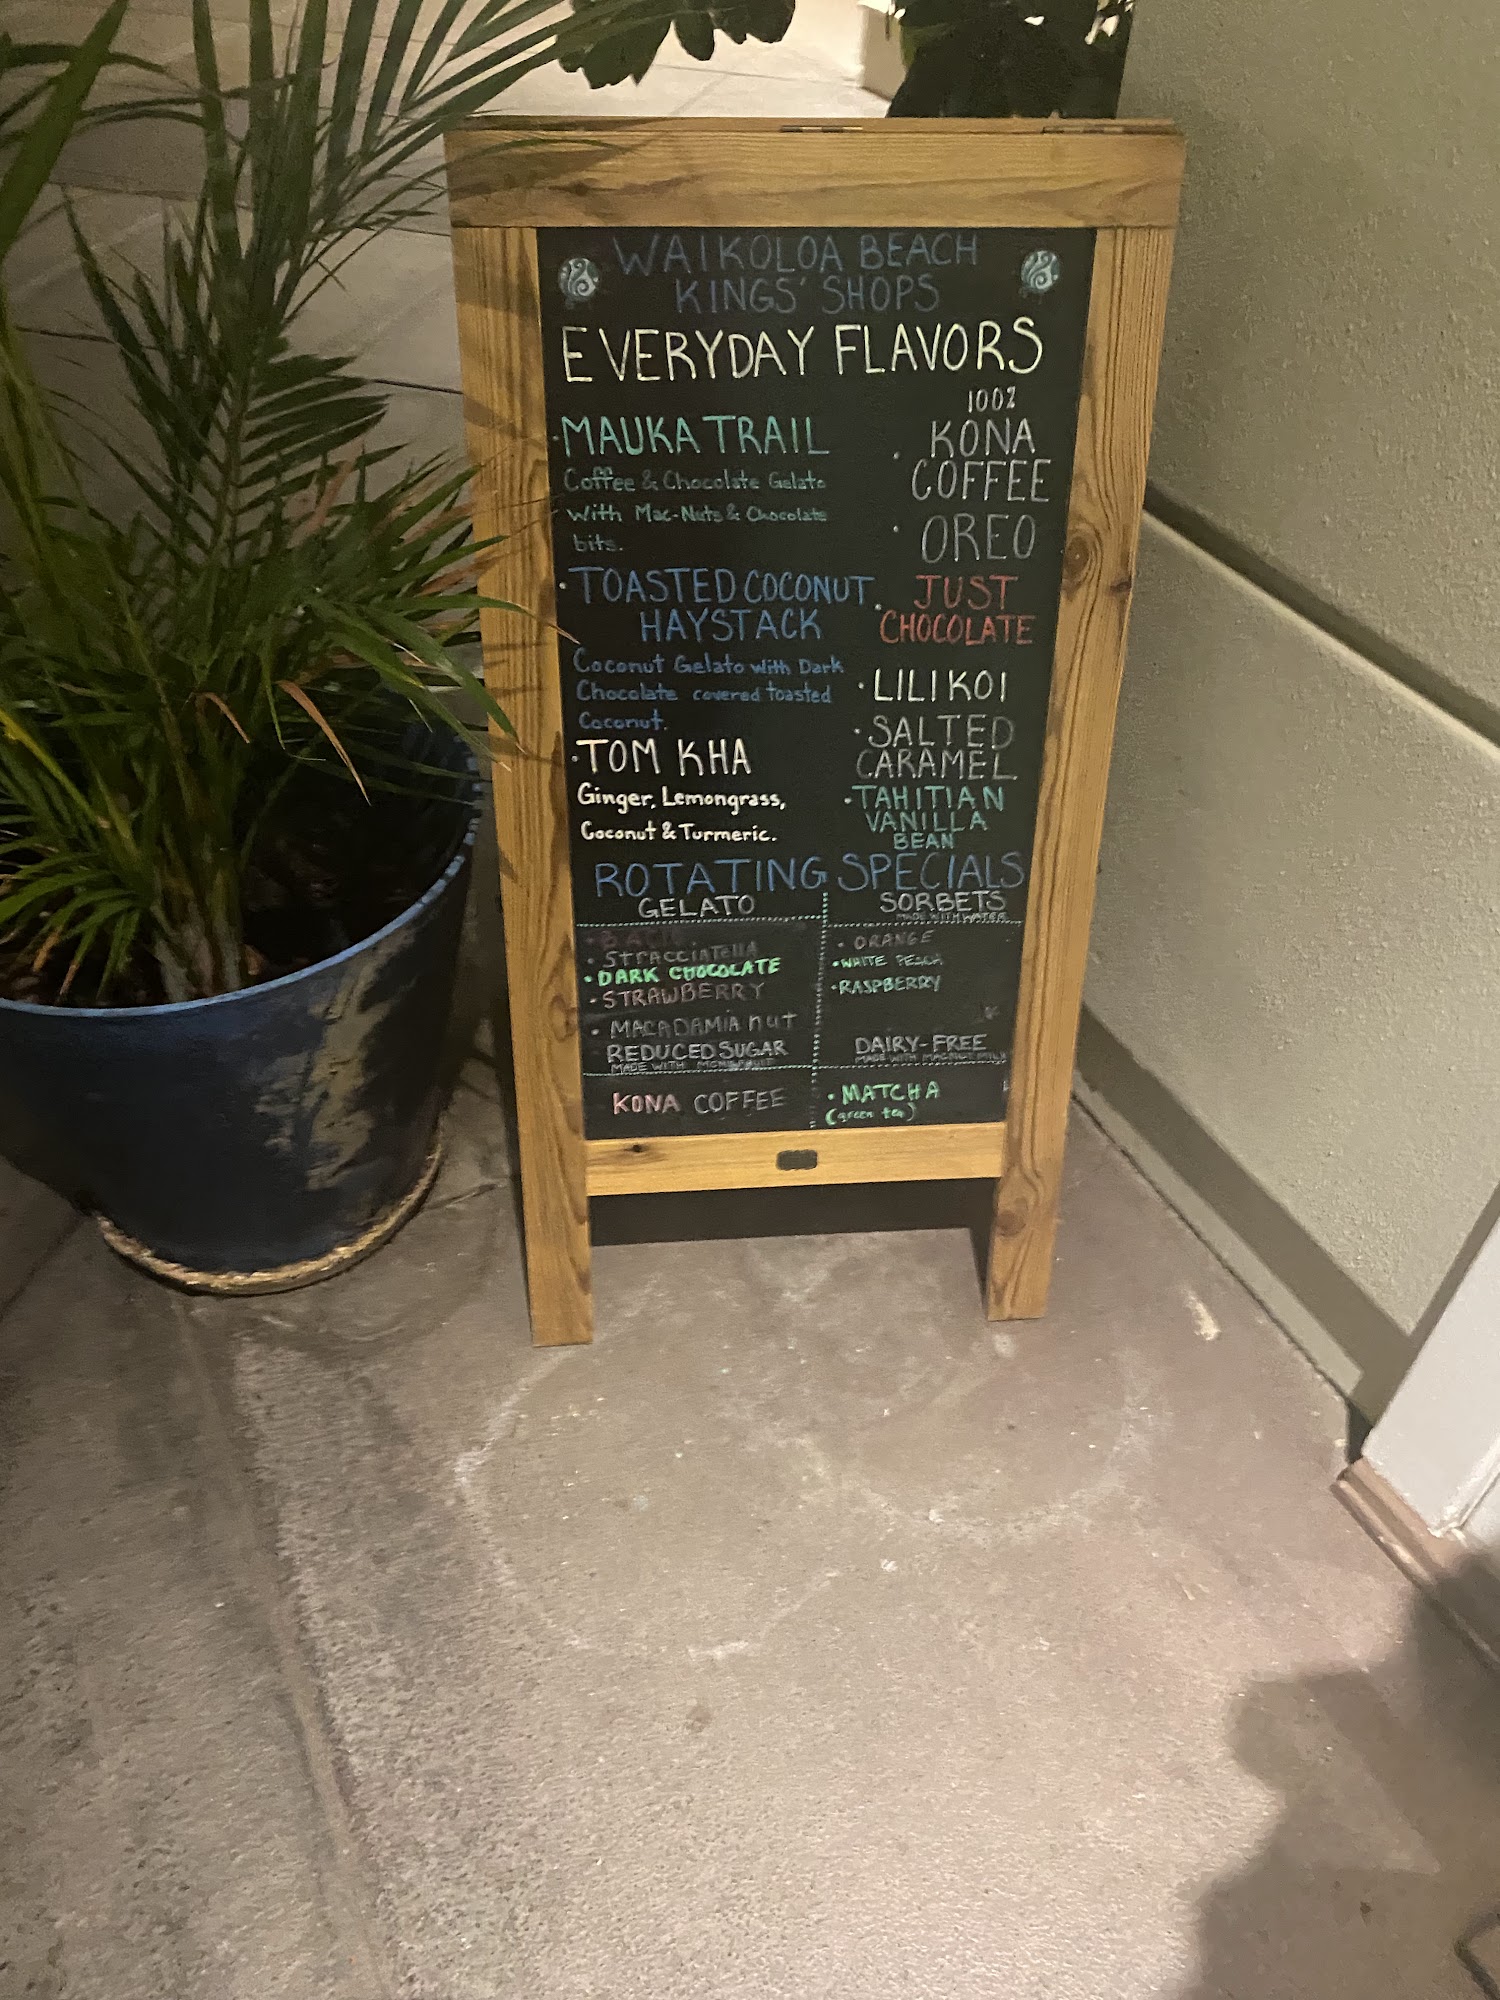 WAIKOLOA BEACH
KINGS' SHOPS
EVERYDAY FLAVORS
· MAUKA TRAIL
Coffee & Chocolate Gelato
With Mac-Nuts & Chocolate
bits.
· TOASTED COCONUT
HAYSTACK
Coconut Gelato with Dark
Chocolate covered toasted
Coconut.
· TOM KHA
Ginger, Lemongrass,
Coconut & Turmeric.
100%
· KONA
COFFEE
· OREO
· JUST
CHOCOLATE
· LILIKOI
· SALTED
CARAMEL
· TAHITIAN
VANILLA
BEAN
ROTATING SPECIALS
GELATO
· STRACCIATELLA
· DARK CHOCOLATE
· STRAWBERRY
· MACADAMIA NUT
REDUCED SUGAR
MADE WITH MONKFRUIT
KONA COFFEE
SORBETS
MADE WITH WATER
· ORANGE
· WHITE PEACH
· RASPBERRY
DAIRY-FREE
MADE WITH MACNUT MILK
· MATCHA
(green tea)